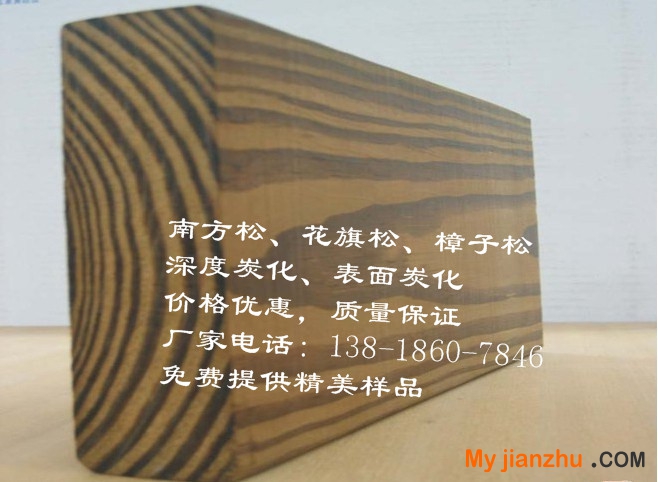 南方松、花旗松、樟子松
深度炭化、表面炭化
价格优惠，质量保证
厂家电话：138-1860-7846
免费提供精美样品
My jianzhu .COM